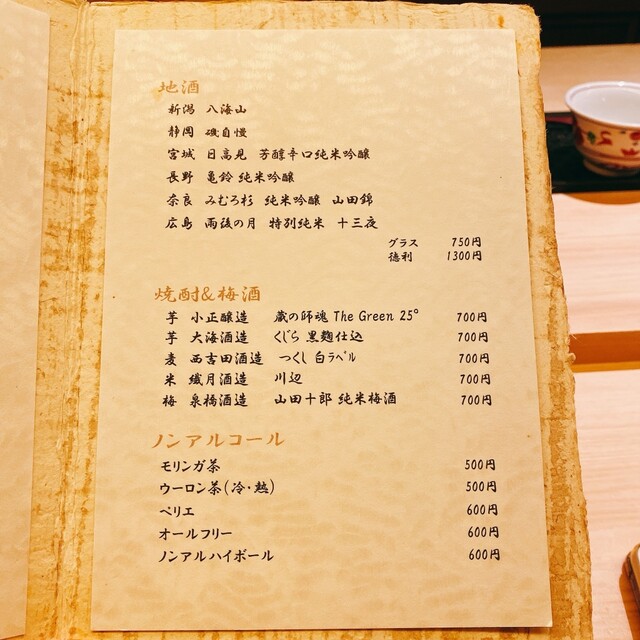 地酒
新潟 八海山
静岡 磯自慢
宮城 日高見 芳醇辛口純米吟醸
長野 亀齢 純米吟醸
奈良 みむろ杉 純米吟醸 山田錦
広島 雨後の月 特別純米 十三夜
グラス 750円
徳利 1300円
焼酎&梅酒
芋 小正醸造 蔵の師魂 The Green 25° 700円
芋 大海酒造 くじら 黒麹仕込 700円
麦 西吉田酒造 つくし 白ラベル 700円
米 繊月酒造 川辺 700円
梅 泉橋酒造 山田十郎 純米梅酒 700円
ノンアルコール
モリンガ茶 500円
ウーロン茶(冷・熱) 500円
ペリエ 600円
オールフリー 600円
ノンアルハイボール 600円